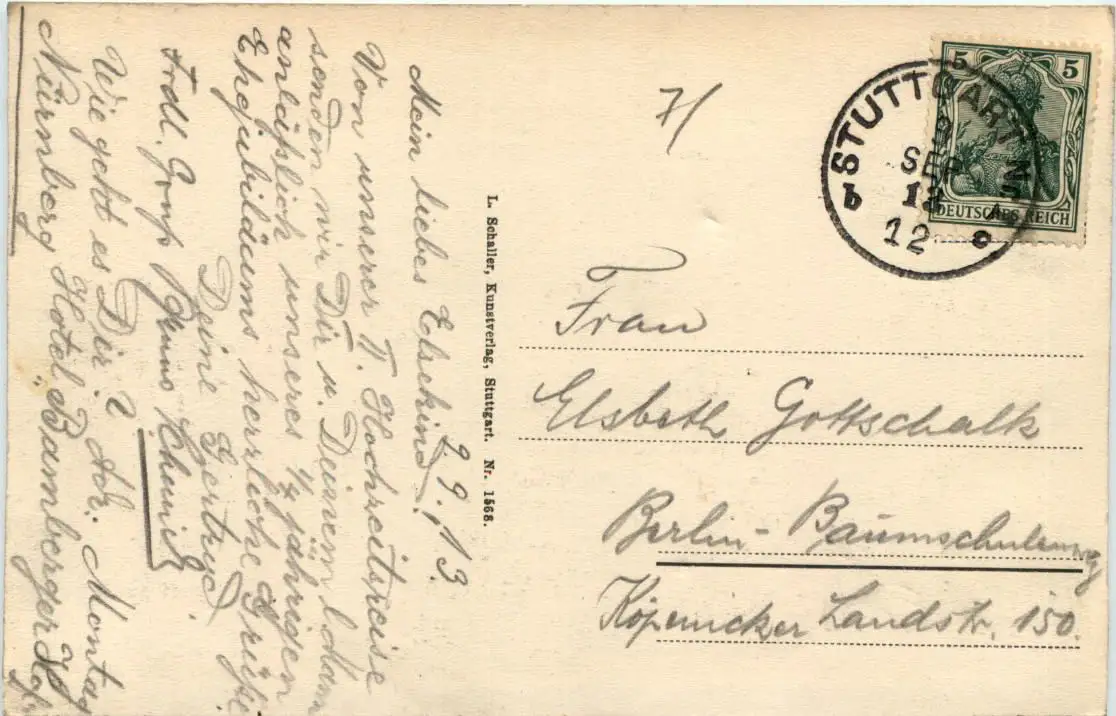 9.9.13.
Mein liebes Elsekind!
Von unserer T. Hochzeitsreise
senden wir Dir u. Deinem l. Mann
anläßlich unseres 1/4 jährigen
Ehejubiläums herrliche Grüße
Deine Gertrud
Frdl. Gruß
Wie geht es Dir? Adr. Montag
Nürnberg Hotel „Bamberger Hof
L. Schaller, Kunstverlag, Stuttgart. Nr. 1568.
7/
5 5
DEUTSCHES REICH
STUTTGART
SEP
12
b
Frau
Elsbeth Gottschalk
Berlin-Baumschulenweg
Köpenicker Landstr. 150.